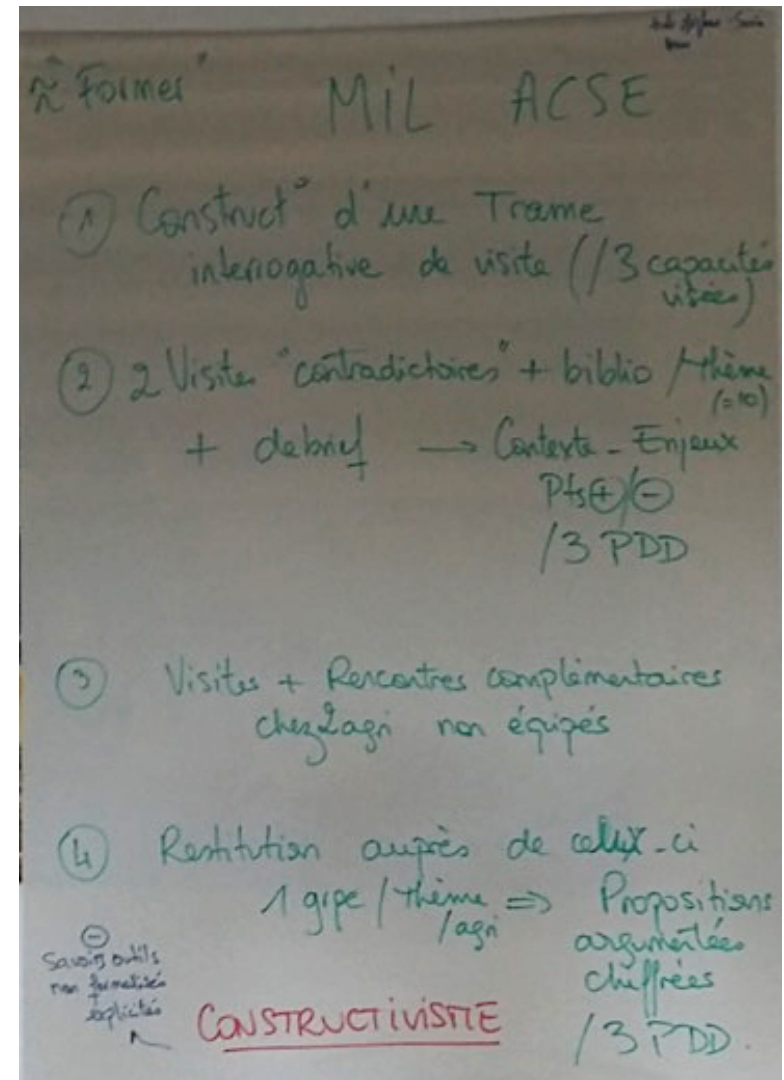 "Former" MiL ACSE
① Construct° d'une Trame
interrogative de visite (/3 capacités
visées)
② 2 Visites "contradictoires" + biblio /thème
(=10)
+ debrief → Contexte - Enjeux
Pts ⊕/⊖
/3 PDD
③ Visites + Rencontres complémentaires
chez 2 agri non équipés
④ Restitution auprès de ceux-ci
1 grpe / thème ⇒ Propositions
/agri argumentées
chiffrées
/3 PDD.
⊖
Savoirs outils
non formalisés
explicités
CONSTRUCTIVISTE